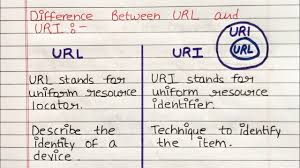 Difference Between URL and
URI :-
URI
URL
URL
URI
URL stands for
uniform resource
locator.
URI stands for
uniform resource
identifier.
Describe the
identity of a
device.
Technique to identify
the item.